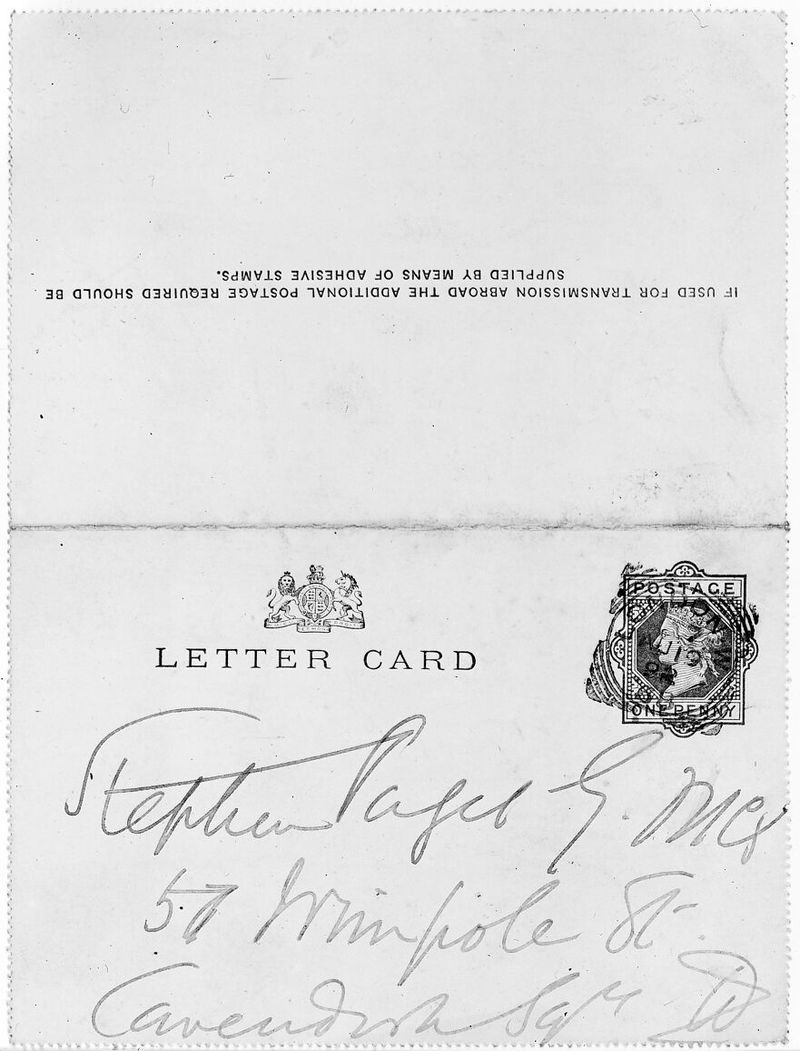 IF USED FOR TRANSMISSION ABROAD THE ADDITIONAL POSTAGE REQUIRED SHOULD BE
SUPPLIED BY MEANS OF ADHESIVE STAMPS.
POSTAGE
LETTER CARD
ONE PENNY
Stephen Paget
57 Wimpole St.
Cavendish Sqre W